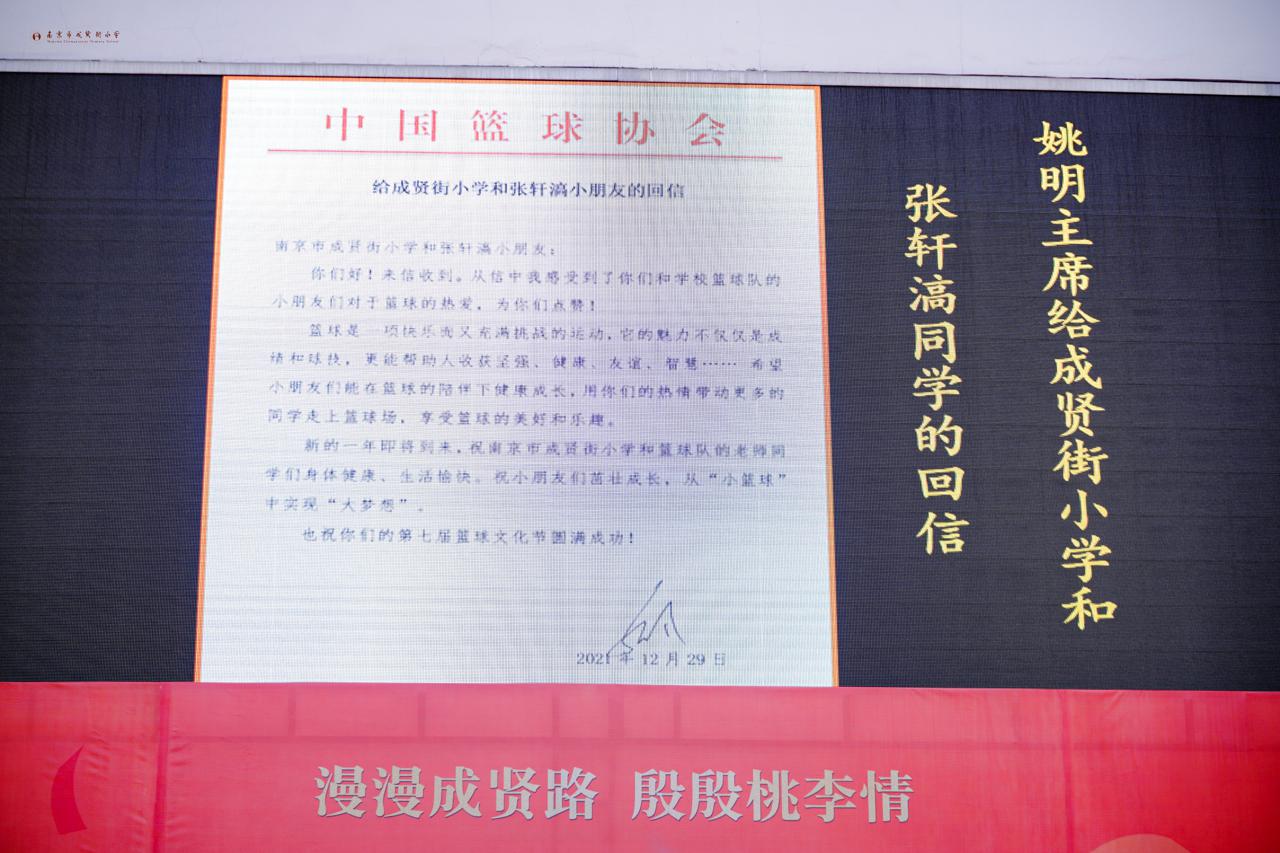 南京市成贤街小学
中国篮球协会
给成贤街小学和张轩滈小朋友的回信
南京市成贤街小学和张轩滈小朋友：
你们好！来信收到。从信中我感受到了你们和学校篮球队的
小朋友们对于篮球的热爱，为你们点赞！
篮球是一项快乐而又充满挑战的运动，它的魅力不仅仅是成
绩和球技，更能帮助人收获坚强、健康、友谊、智慧…… 希望
小朋友们能在篮球的陪伴下健康成长，用你们的热情带动更多的
同学走上篮球场，享受篮球的美好和乐趣。
新的一年即将到来，祝南京市成贤街小学和篮球队的老师同
学们身体健康、生活愉快。祝小朋友们茁壮成长，从“小篮球”
中实现“大梦想”。
也祝你们的第七届篮球文化节圆满成功！
2021年12月29日
姚明主席给成贤街小学和
张轩滈同学的回信
漫漫成贤路 殷殷桃李情